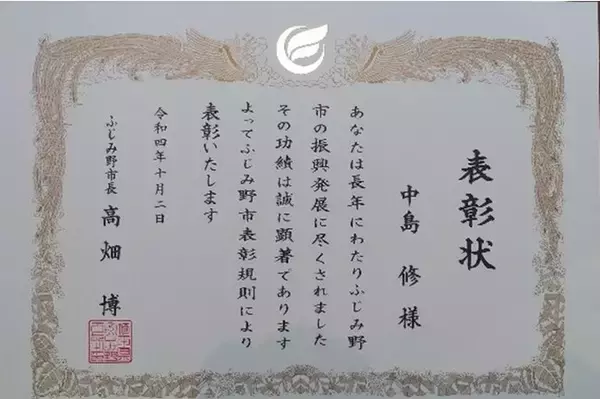 表彰状
中島 修 様
あなたは長年にわたりふじみ野
市の振興発展に尽くされました
その功績は誠に顕著であります
よってふじみ野市表彰規則により
表彰いたします
令和四年十月二日
ふじみ野市長 高畑 博